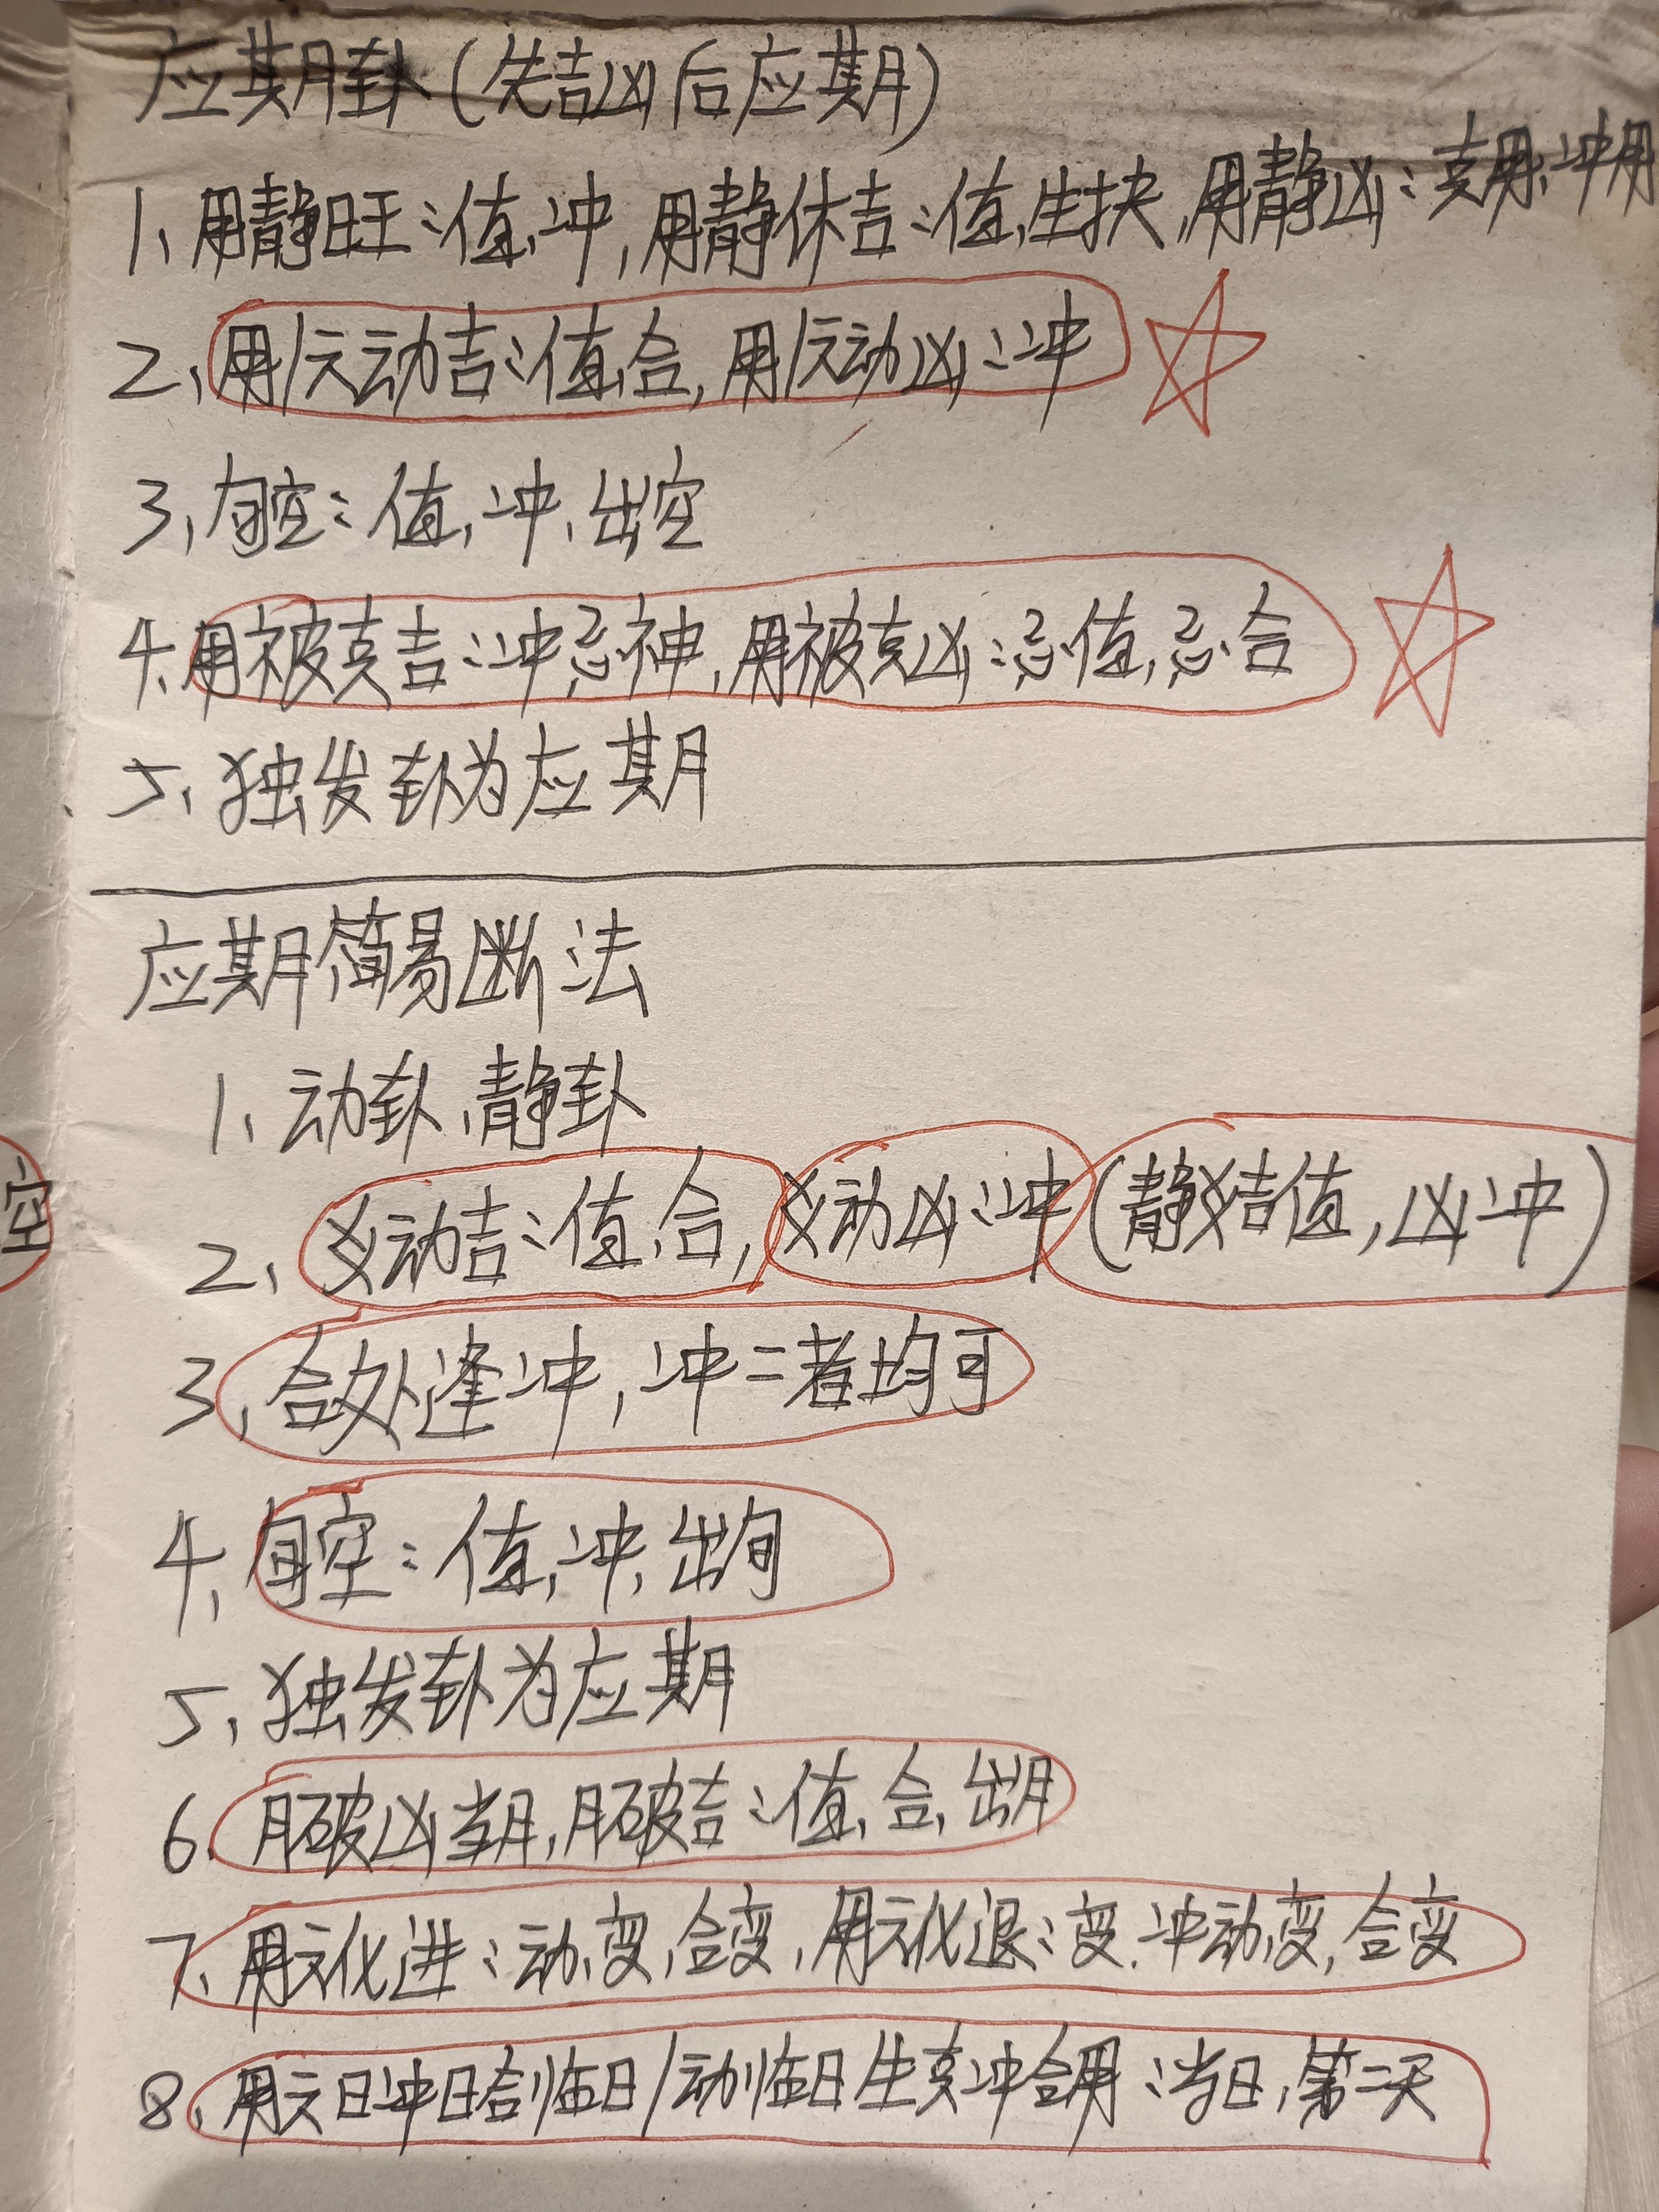 应期卦(先吉凶后应期)
1、用静旺:值、冲,用静休吉:值、生扶,用静凶:克用、冲用
2、用/元动吉:值、合,用/元动凶:冲
3、旬空:值、冲、出空
4、用被克吉:冲忌神,用被克凶:忌值、忌合
5、独发卦为应期
应期简易断法
1、动卦、静卦
2、爻动吉:值、合,爻动凶:冲(静爻吉值,凶冲)
3、合处逢冲,冲二者均可
4、旬空:值、冲、出旬
5、独发卦为应期
6、月破凶当月,月破吉:值、合、出月
7、用元化进:动、变、合变,用元化退:变、冲动变,合变
8、用元日冲日合临日/动临日生克冲合用:当日、第二天
空